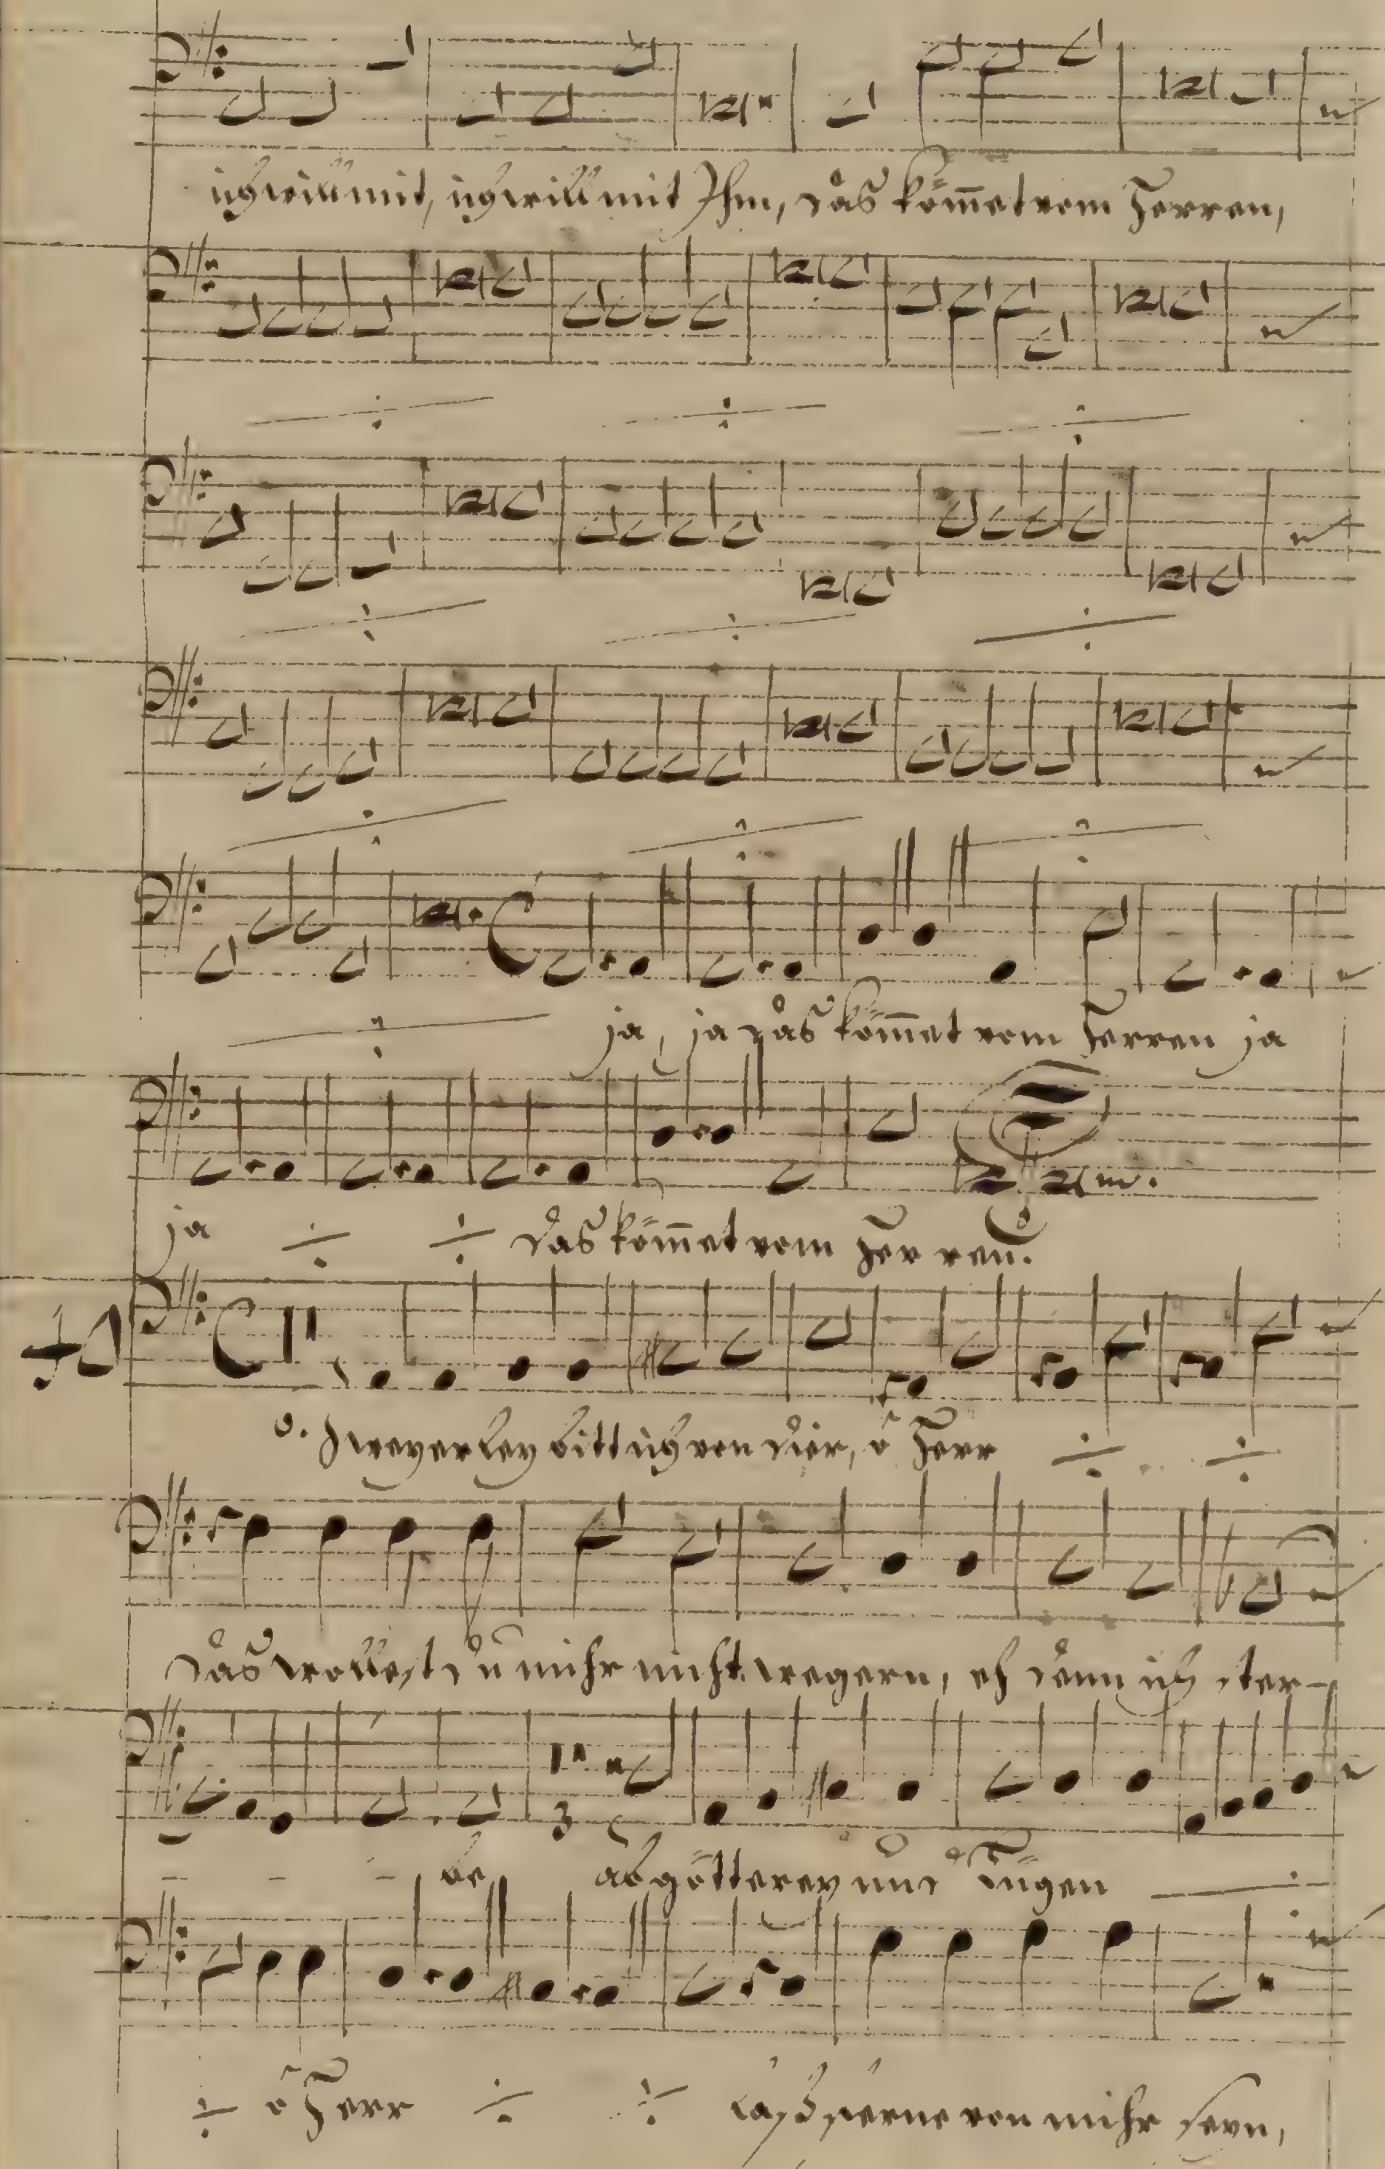 ich will mit, ich will mit Ihm, das kom̅et vom Herren,
ja, ja das kom̅et vom Herren ja
ja das kom̅et vom Her ren.
Zweyerley bitt ich von dier, o Herr
das wollest du mihr nicht wegern, eh denn ich ster-
- - - be abgötterey und Lügen
o Herr laß ferne von mihr seyn,